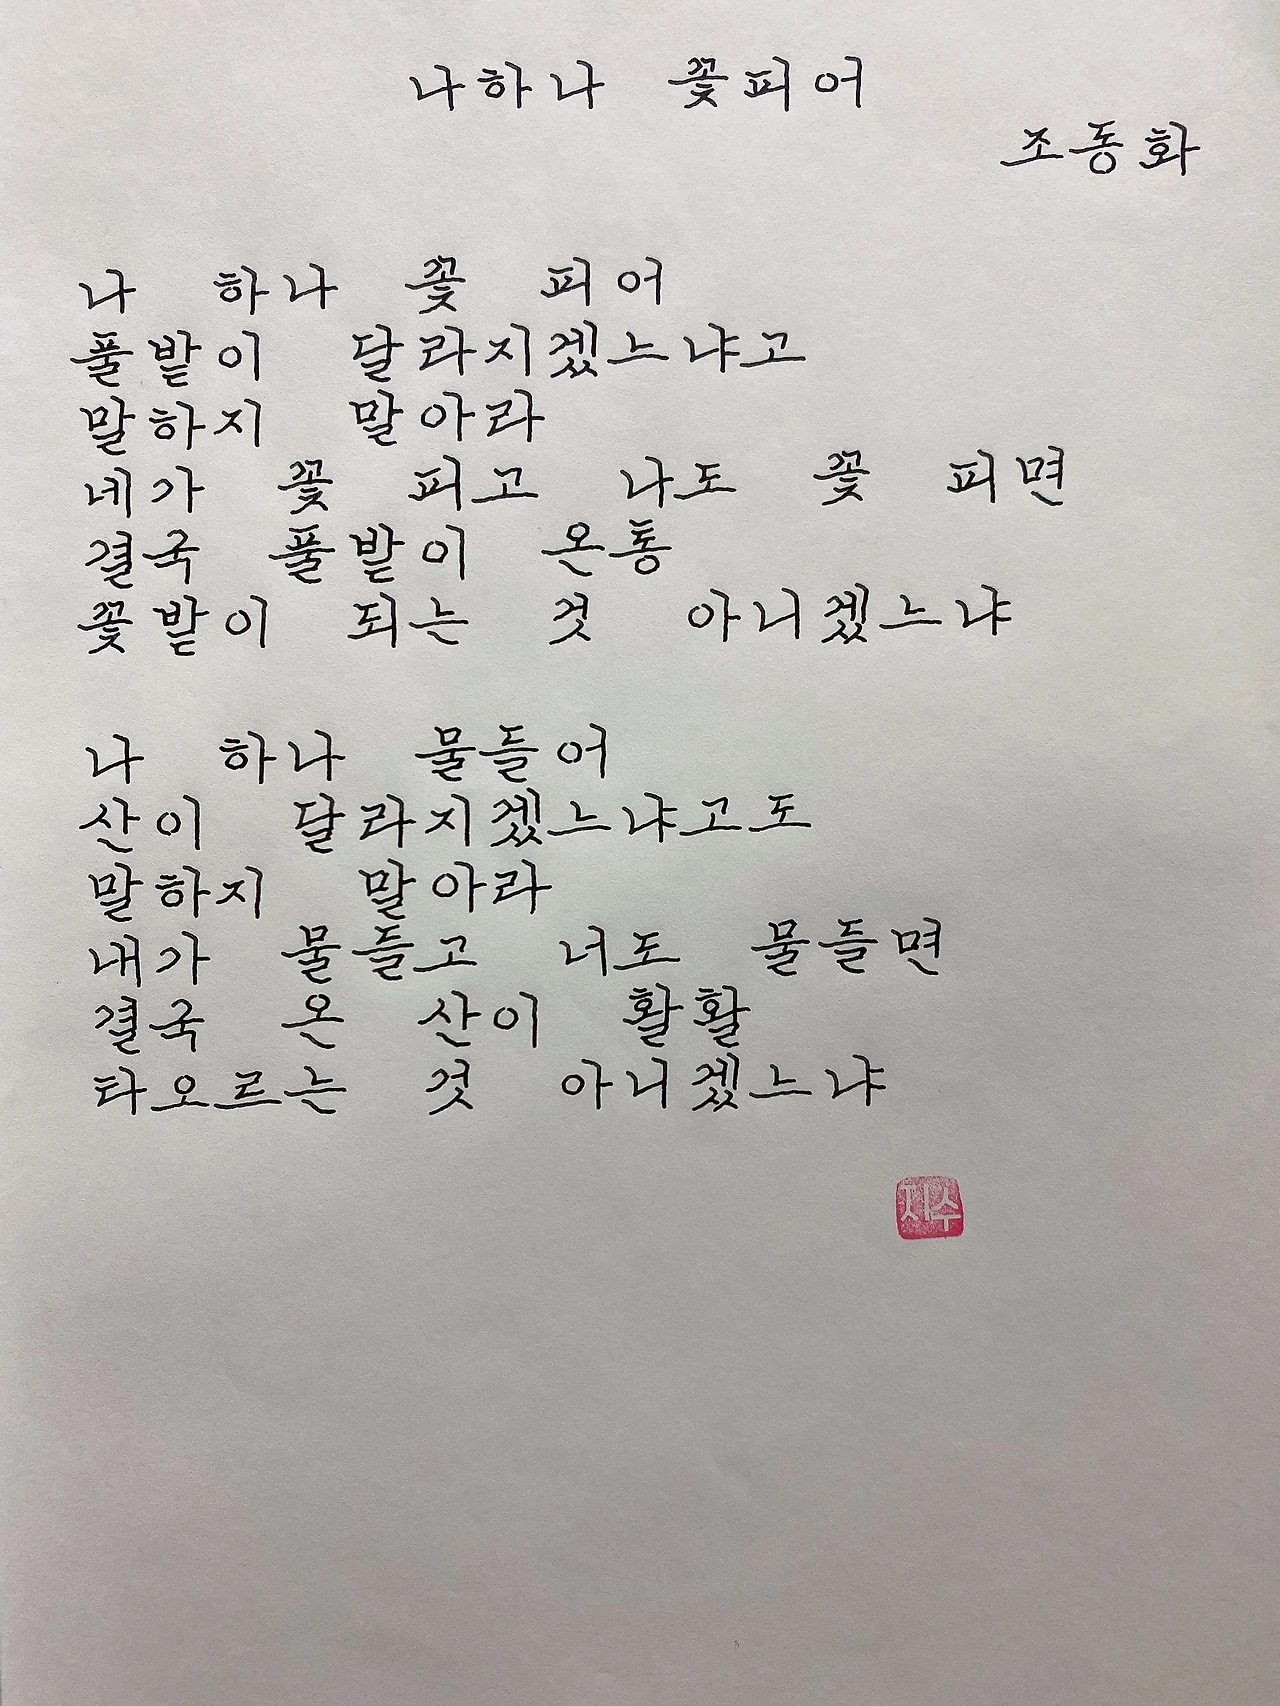 나하나 꽃피어
조동화
나 하나 꽃 피어
풀밭이 달라지겠느냐고
말하지 말아라
네가 꽃 피고 나도 꽃 피면
결국 풀밭이 온통
꽃밭이 되는 것 아니겠느냐
나 하나 물들어
산이 달라지겠느냐고도
말하지 말아라
내가 물들고 너도 물들면
결국 온 산이 활활
타오르는 것 아니겠느냐
지수